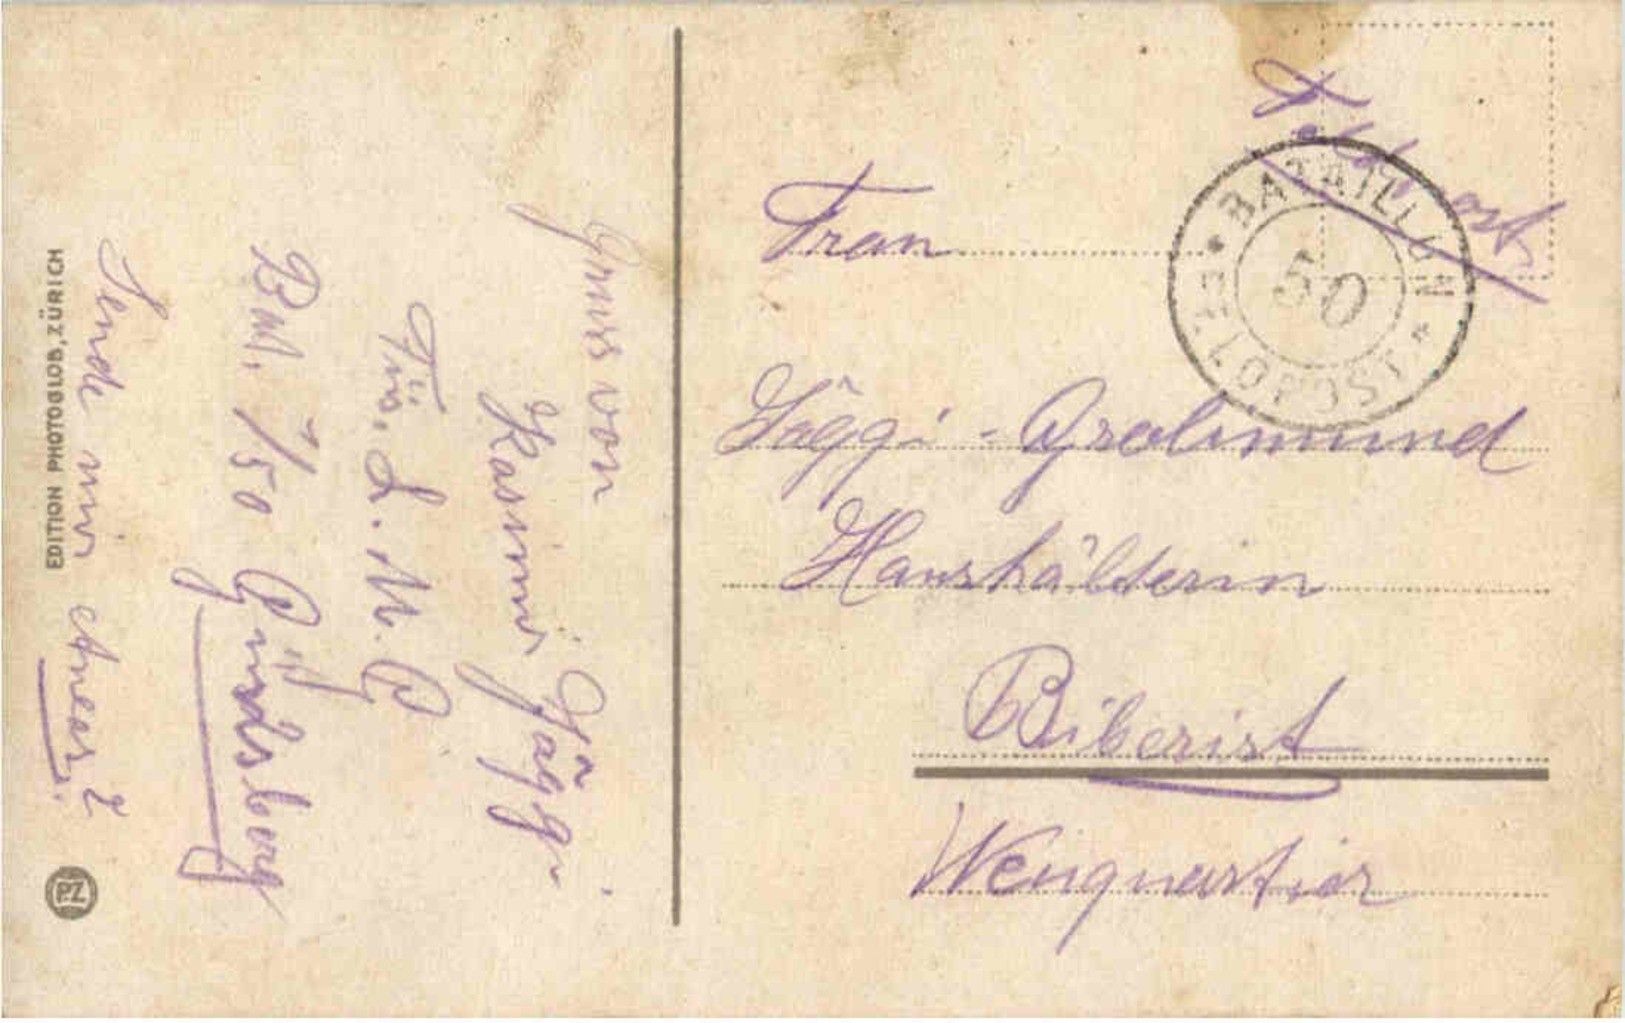 Gruss von
Kasimir Jäggi
Füs. L. M. G
Bat. 1/50 Günsberg
Sende mir etwas?
EDITION PHOTOGLOB, ZÜRICH
PZ
Feldpost
* BATAILLON *
50
FELDPOST
Frau
Jäggi - Grolimund
Haushälterin
Biberist